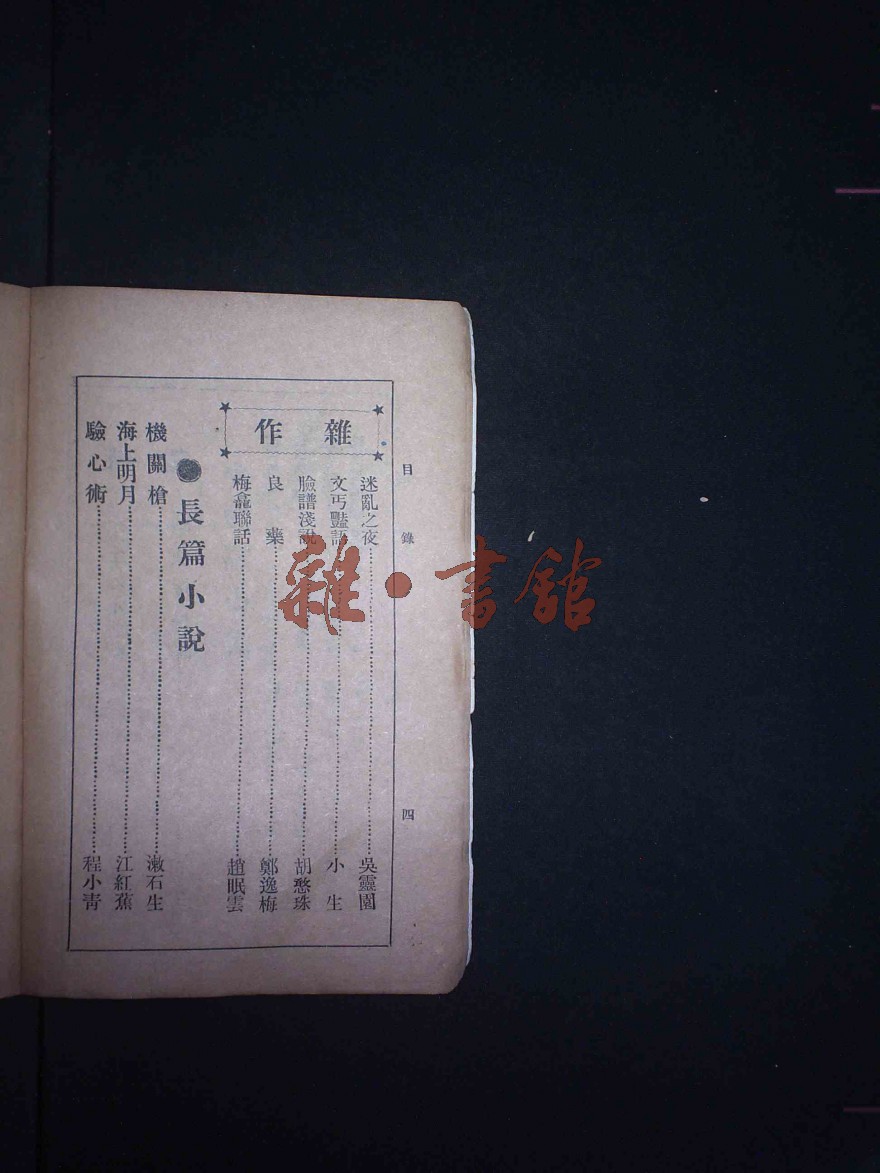 目錄
四
雜作
迷亂之夜 吳靈園
文丐豔語 小生
臉譜淺說 胡憨珠
良藥 鄭逸梅
梅龕聯話 趙眠雲
●長篇小說
機關槍 漱石生
海上明月 江紅蕉
驗心術 程小青
雜·書館